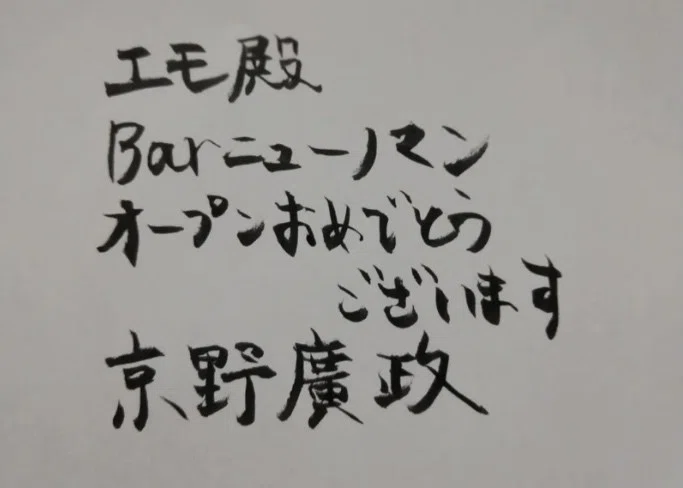 エモ殿
Barニューノマン
オープンおめでとう
ございます
京野廣政